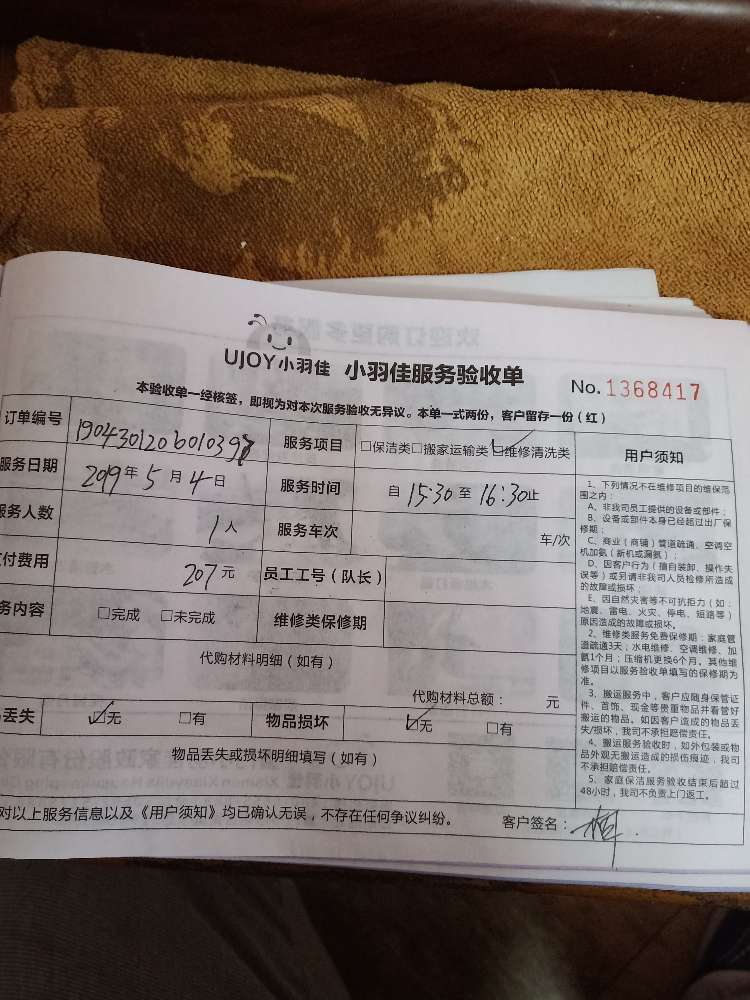 UJOY小羽佳 小羽佳服务验收单 No. 1368417
本验收单一经核签，即视为对本次服务验收无异议。本单一式两份，客户留存一份（红）
订单编号
服务项目 □保洁类□搬家运输类☑维修清洗类
服务日期 2019年5月4日
服务时间 自15:30至16:30止
服务人数 1人
服务车次 车/次
付费用 207元
员工工号（队长）
务内容 □完成 □未完成
维修类保修期
代购材料明细（如有）
代购材料总额： 元
丢失 ☑无 □有
物品损坏 ☑无 □有
物品丢失或损坏明细填写（如有）
对以上服务信息以及《用户须知》均已确认无误，不存在任何争议纠纷。 客户签名：
用户须知
1、下列情况不在维修项目的维保范
围之内：
A、非我司员工提供的设备或部件；
B、设备或部件本身已经超过出厂保
修期；
C、商业（商铺）管道疏通、空调空
机加氨（新机或漏氨）；
D、因客户行为（擅自装卸、操作失
误等）或另请非我司人员检修所造成
的故障或损坏；
E、因自然灾害等不可抗拒力（如：
地震、雷电、火灾、停电、短路等）
原因造成的故障或损坏。
2、维修类服务免费保修期：家庭管
道疏通3天；水电维修、空调维修、加
氨1个月；压缩机更换6个月。其他维
修项目以服务验收单填写的保修期为
准。
3、搬运服务中，客户应随身保管证
件、首饰、现金等贵重物品并看管好
搬运的物品。如因客户造成的物品丢
失/损坏，我司不承担赔偿责任。
4、搬运服务验收时，如外包装或物
品外观无搬运造成的损伤痕迹，我司
不承担赔偿责任。
5、家庭保洁服务验收结束后超过
48小时，我司不负责上门返工。